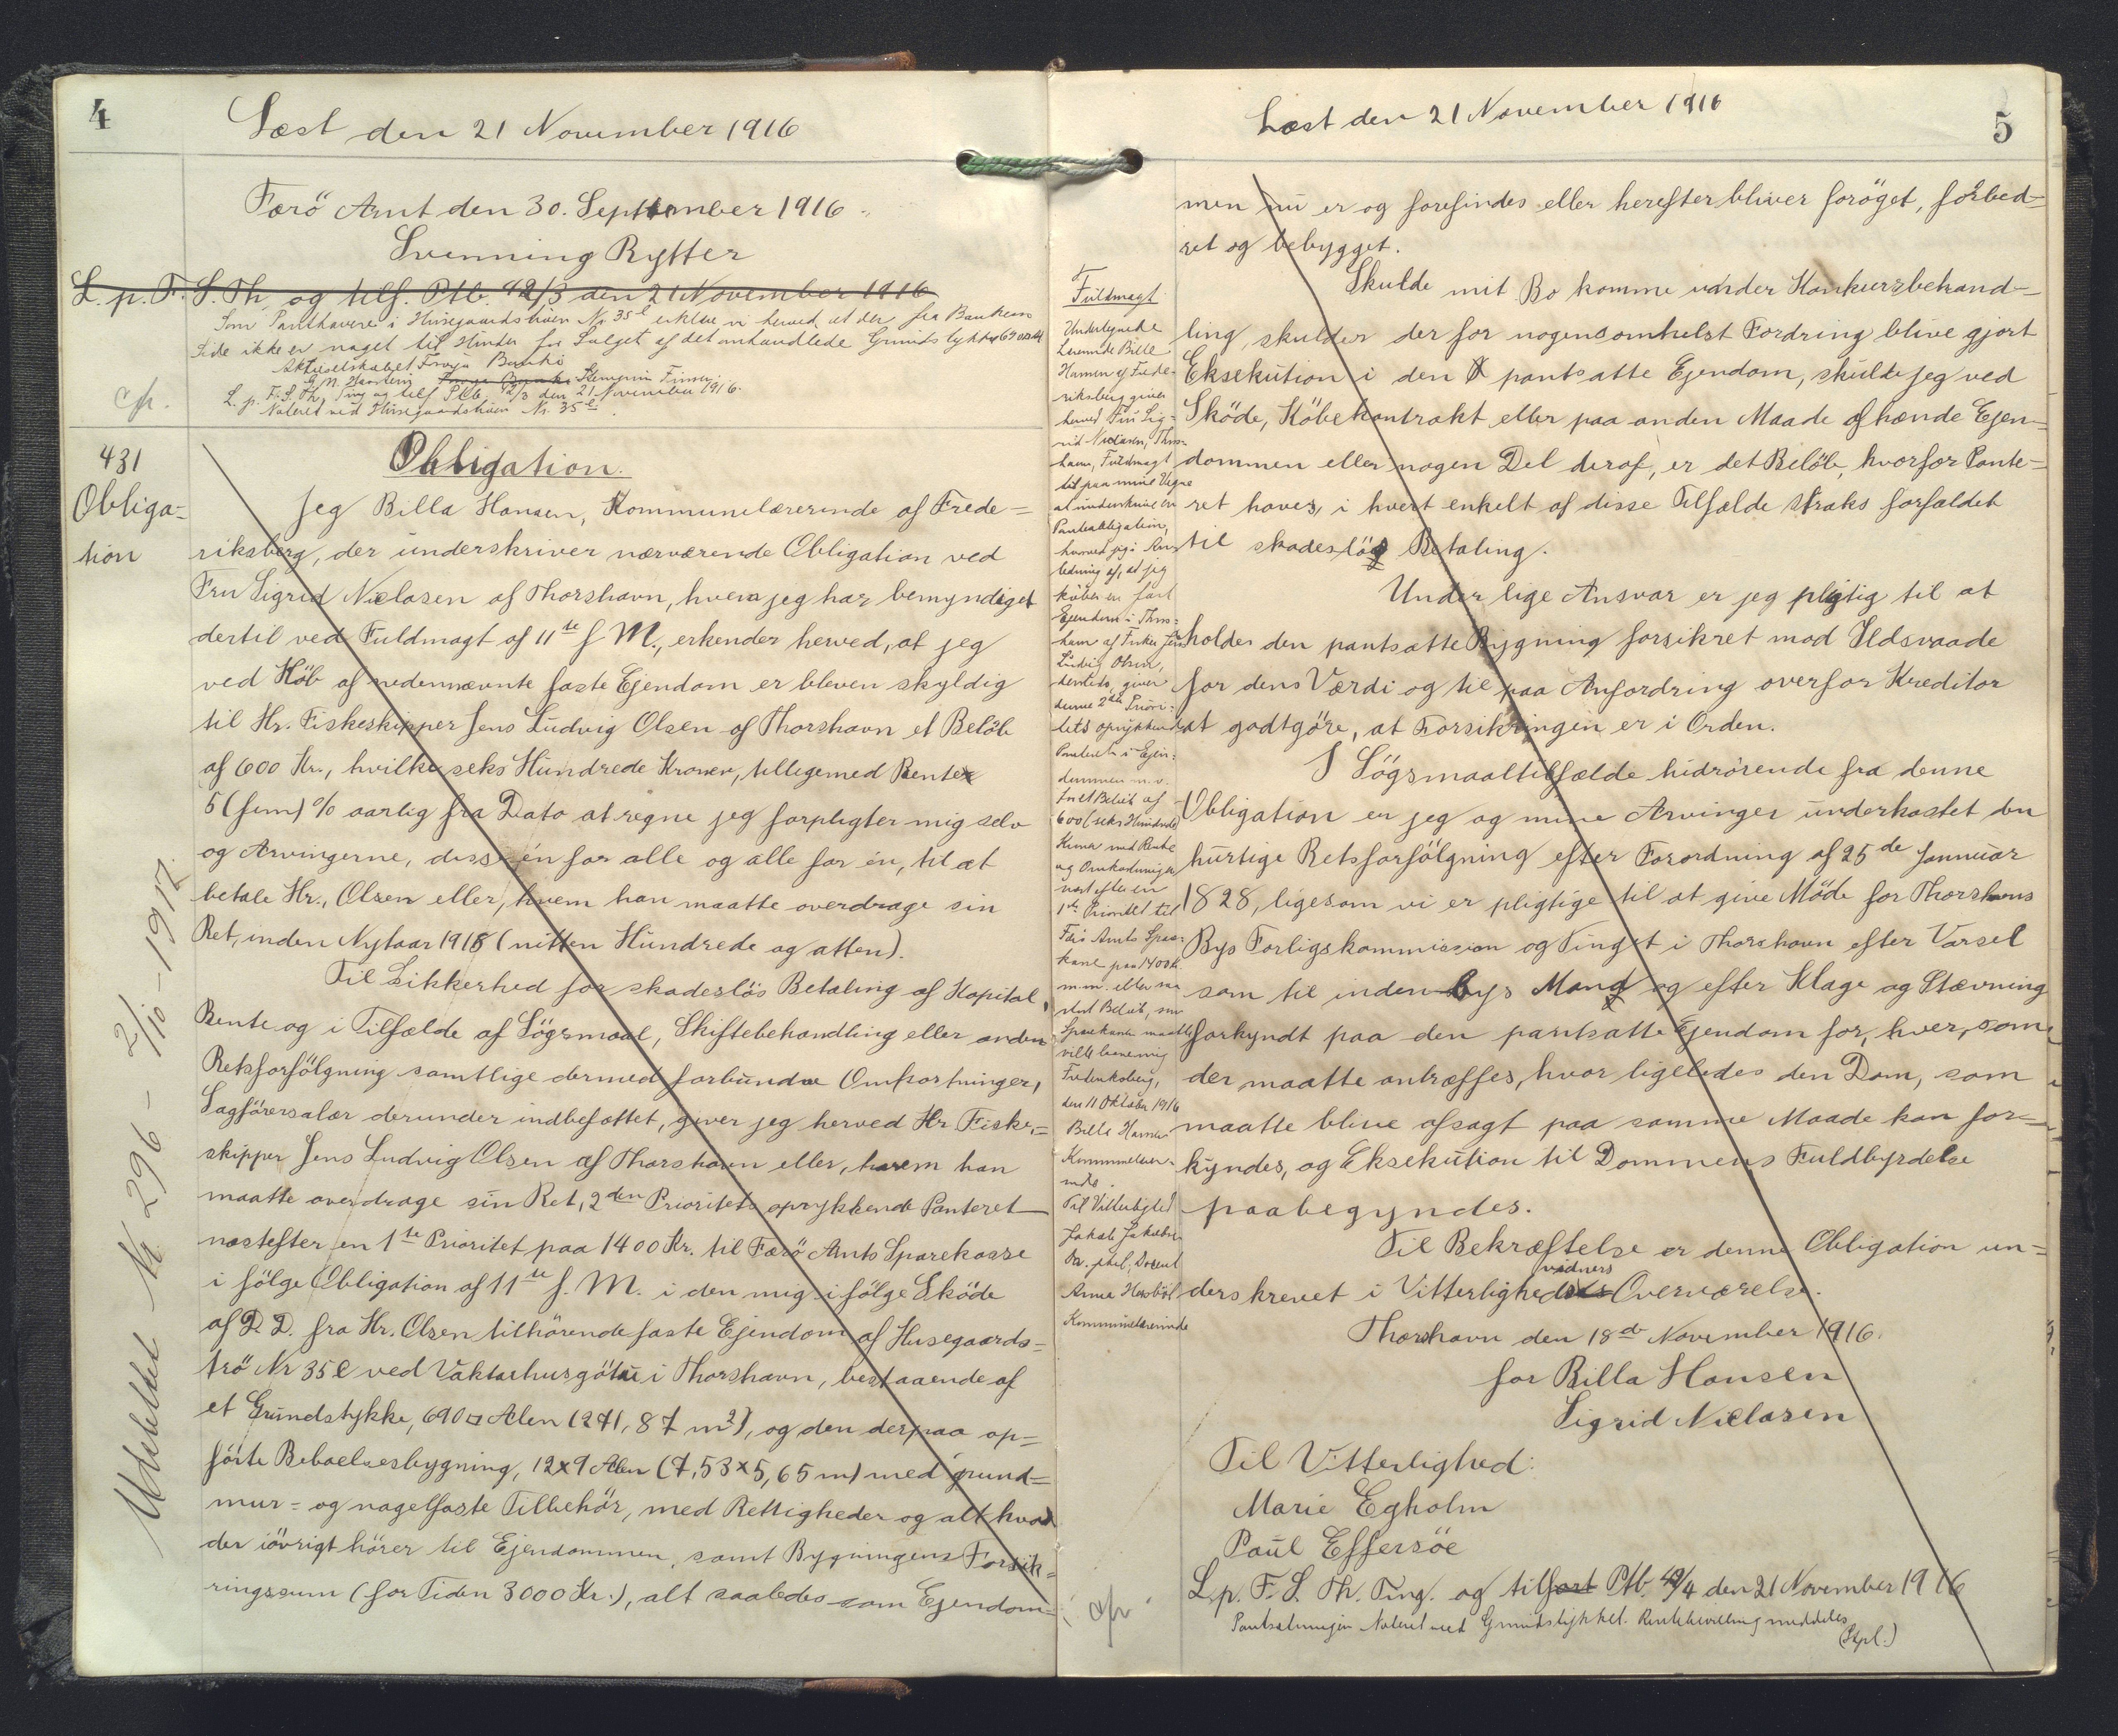 4
Læst den 21 November 1916
Færö Amt den 30. September 1916.
Svenning Rytter
L. p. F. S. Th. og tilf. Ptb. 42/3 den 21 November 1916
Som Panthavere i Husegaardströen Nr. 35 l erklære vi herved, at der fra Bankens
Side ikke er noget til Hinder for Salget af det omhandlede Grundstykke
Aktieselskabet Froya Banki
L. p. F. S. Th. Ting og tilf Ptb. 42/3 den 21 November 1916.
Noteret ved Husegaardstroen Nr. 35 l
cfr.
431
Obliga-
tion
Udslettet Nr. 296 - 2/10-1917.
Obligation.
Jeg Billa Hansen, Kommunelærerinde af Frede-
riksberg, der underskriver nærværende Obligation ved
Fru Sigrid Niclasen af Thorshavn, hvem jeg har bemyndiget
dertil ved Fuldmagt af 11te f. M., erkender herved, at jeg
ved Köb af nedennævnte faste Ejendom er bleven skyldig
til Hr. Fiskeskipper Jens Ludvig Olsen af Thorshavn et Belöb
af 600 Kr., hvilke seks Hundrede Kroner, tilligemed Rente
5 (fem) % aarlig fra Dato at regne jeg forpligter mig selv
og Arvingerne, disse én for alle og alle for én, til at
betale Hr. Olsen eller, hvem han maatte overdrage sin
Ret, inden Nytaar 1918 (nitten Hundrede og atten).
Til Sikkerhed for skadeslös Betaling af Kapital,
Rente og i Tilfælde af Sögsmaal, Skiftebehandling eller anden
Retsforfölgning samtlige dermed forbundne Omkostninger,
Sagförersalær derunder indbefattet, giver jeg herved Hr. Fiske-
skipper Jens Ludvig Olsen af Thorshavn eller, hvem han
maatte overdrage sin Ret, 2den Prioritets oprykkende Panteret
næstefter en 1ste Prioritet paa 1400 Kr. til Færö Amts Sparekasse
i fölge Obligation af 11te f. M. i den mig i fölge Sköde
af D. D. fra Hr. Olsen tilhörende faste Ejendom af Husegaards-
trö Nr 35 l ved Vaktarhusgötu i Thorshavn, bestaaende af
et Grundstykke, 690 □ Alen (271,87 m²), og den derpaa op-
förte Beboelsesbygning, 12x9 Alen (7,53 x 5,65 m) med grund-
mur- og nagelfaste Tilbehör, med Rettigheder og alt hvad
der iövrigt hörer til Ejendommen, samt Bygningens Forsik-
ringssum (for Tiden 3000 Kr.), alt saaledes som Ejendom-
cfr
Læst den 21 November 1916
5
Fuldmagt
Undertegnede
Lærerinde Billa
Hansen af Frede-
riksberg giver
herved Fru Sig-
rid Niclasen, Thors-
havn, Fuldmagt
til paa mine Vegne
at underskrive en
Panteobligation,
hvorved jeg i An-
ledning af, at jeg
köber en fast
Ejendom i Thors-
havn af Fisker Jens
Ludvig Olsen,
dersteds, giver
denne 2den Priori-
tets oprykkende
Panteret i Ejen-
dommen m.v.
for et Belöb af
600 (seks Hundrede)
Kroner med Rente
og Omkostninger
næst efter en
1ste Prioritet til
Færö Amts Spare-
kasse paa 1400 Kr.
Sparekassen maatte
ville laane mig
Frederiksberg,
den 11 Oktober 1916
Billa Hansen
Kommunelærer-
inde.
Til Vitterlighed
Jakob Jakobsen
Dr. phil., Docent
Kommunelærerinde
men nu er og forefindes eller herefter bliver foröget, forbed-
ret og bebygget.
Skulde mit Bo komme under Konkursbehand-
ling, skulder der for nogensomhelst Fordring blive gjort
Eksekution i den pantsatte Ejendom, skulde jeg ved
Sköde, Köbekontrakt eller paa anden Maade afhænde Ejen-
dommen eller nogen Del deraf, er det Belöb, hvorfor Pante-
ret haves, i hvert enkelt af disse Tilfælde straks forfaldet
til skadeslös Betaling.
Under lige Ansvar er jeg pligtig til at
holde den pantsatte Bygning forsikret mod Ildsvaade
for dens Værdi og til paa Anfordring overfor Kreditor
at godtgöre, at Forsikringen er i Orden.
I Sögsmaaltilfælde hidrörende fra denne
Obligation er jeg og mine Arvinger underkastet den
hurtige Retsforfölgning efter Forordning af 25de Januar
1828, ligesom vi er pligtige til at give Möde for Thorshavns
Bys Forligskommission og Tinget i Thorshavn efter Varsel
som til indenbys Mand og efter Klage og Stævning
forkyndt paa den pantsatte Ejendom for, hver, som
der maatte antræffes, hvor ligeledes den Dom, som
maatte blive afsagt paa samme Maade kan for-
kyndes, og Eksekution til Dommens Fuldbyrdelse
paabegyndes.
Til Bekræftelse er denne Obligation un-
derskrevet i Vitterligheds vidners Overværelse.
Thorshavn den 18de November 1916.
for Billa Hansen
Sigrid Niclasen
Til Vitterlighed:
Marie Egholm
Paul Effersöe
L. p. F. S. Th. Ting. og tilfört Ptb. 42/4 den 21 November 1916
Pantsætningen Noteret ved Grundstykket. Rentebevilling meddeles
(Stpl.)